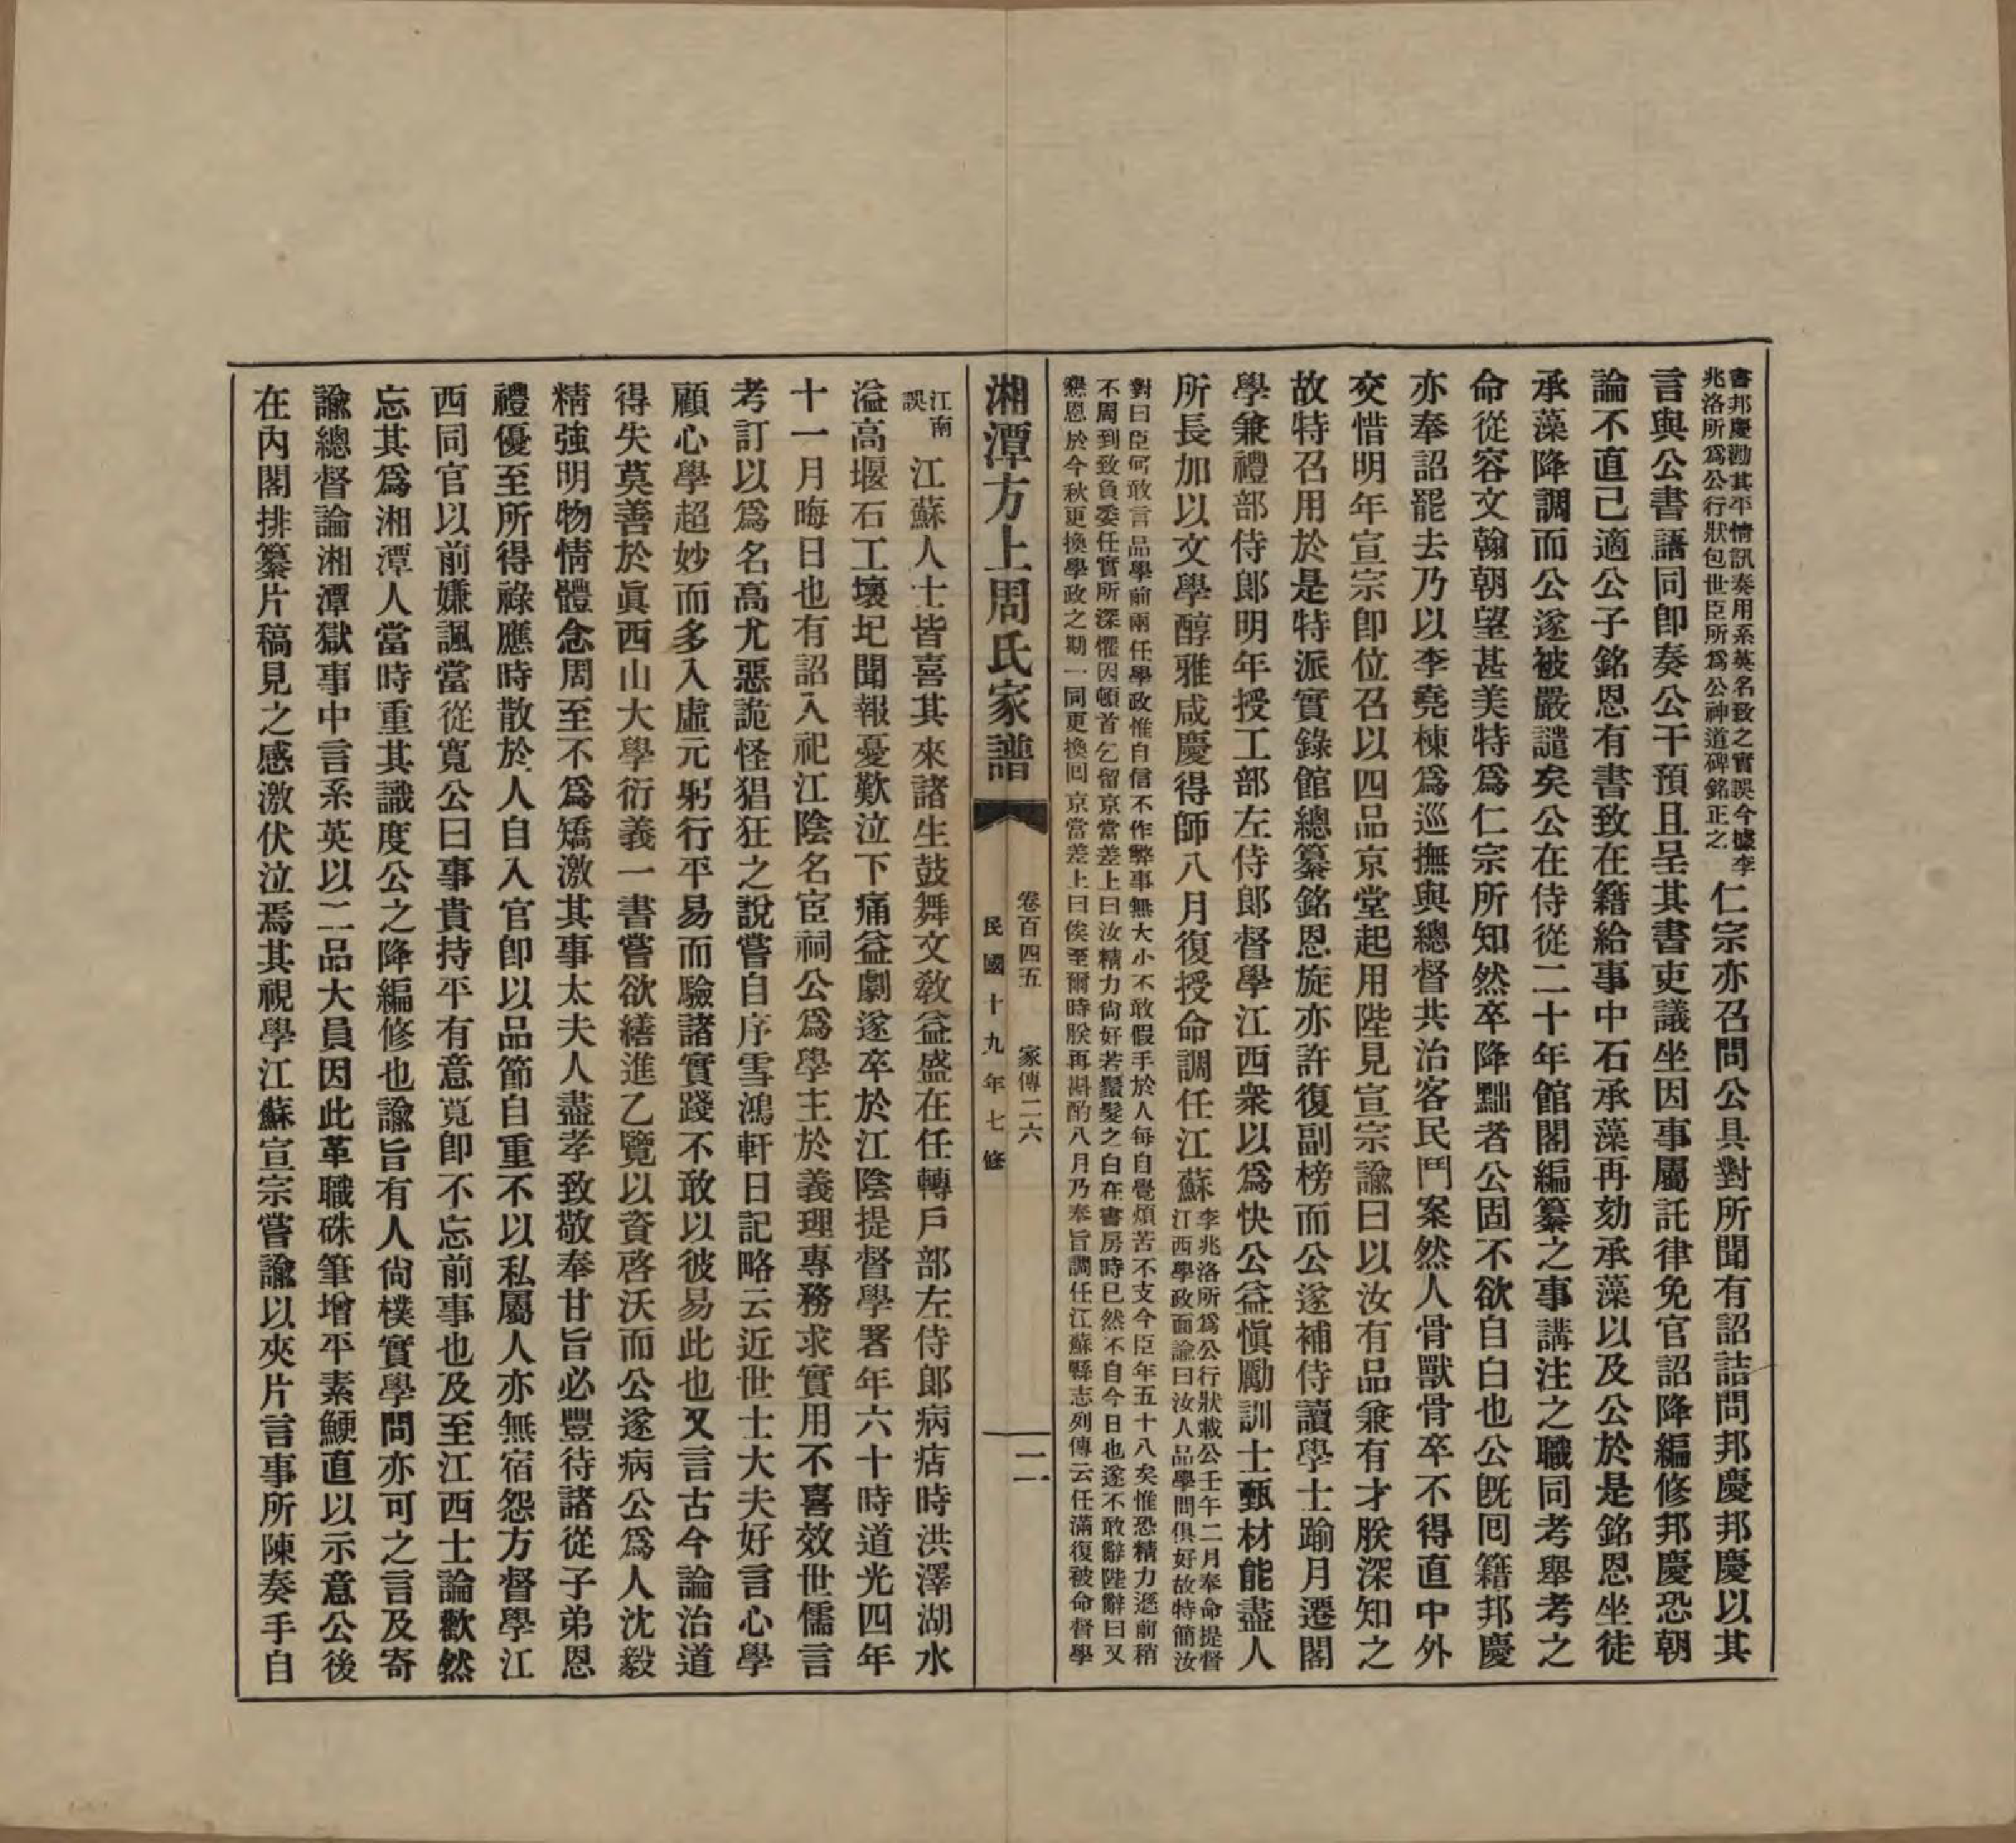 書邦慶勘其平情訊奏用系英名致之實誤今據李
兆洛所爲公行狀包世臣所爲公神道碑銘正之
仁宗亦召問公具對所聞有詔詰問邦慶邦慶以其
言與公書語同卽奏公干預且呈其書吏議坐因事屬託律免官詔降編修邦慶恐朝
論不直己適公子銘恩有書致在籍給事中石承藻再劾承藻以及公於是銘恩坐徒
承藻降調而公遂被嚴譴矣公在侍從二十年館閣編纂之事講注之職同考舉考之
命從容文翰朝望甚美特爲仁宗所知然卒降黜者公固不欲自白也公旣囘籍邦慶
亦奉詔罷去乃以李堯棟爲巡撫與總督共治客民鬥案然人骨獸骨卒不得直中外
交惜明年宣宗卽位召以四品京堂起用陛見宣宗諭曰以汝有品兼有才朕深知之
故特召用於是特派實錄館總纂銘恩旋亦許復副榜而公遂補侍讀學士踰月遷閣
學兼禮部侍郎明年授工部左侍郎督學江西衆以爲快公益愼勵訓士甄材能盡人
所長加以文學醇雅咸慶得師八月復授命調任江蘇
李兆洛所爲公行狀載公壬午二月奉命提督
江西學政面諭曰汝人品學問俱好故特簡汝
對曰臣何敢言品學前兩任學政惟自信不作弊事無大小不敢假手於人每自覺煩苦不支今臣年五十八矣惟恐精力遜前稍
不周到致負委任實所深懼因頓首乞留京當差上曰汝精力尙好若鬚髮之白在書房時已然不自今日也遂不敢辭陛辭曰又
懇恩於今秋更換學政之期一同更換囘京當差上曰俟至爾時朕再斟酌八月乃奉旨調任江蘇縣志列傳云任滿復被命督學
湘潭方上周氏家譜
卷百四五 家傳二六
民國十九年七修
二
江南
誤
江蘇人士皆喜其來諸生鼓舞文敎益盛在任轉戶部左侍郎病痁時洪澤湖水
溢高堰石工壞圮聞報憂歎泣下痛益劇遂卒於江陰提督學署年六十時道光四年
十一月晦日也有詔入祀江陰名宦祠公爲學主於義理專務求實用不喜效世儒言
考訂以爲名高尤惡詭怪猖狂之說嘗自序雪鴻軒日記略云近世士大夫好言心學
顧心學超妙而多入虛元躬行平易而驗諸實踐不敢以彼易此也又言古今論治道
得失莫善於眞西山大學衍義一書嘗欲繕進乙覽以資啓沃而公遂病公爲人沈毅
精強明物情體念周至不爲矯激其事太夫人盡孝致敬奉甘旨必豐待諸從子弟恩
禮優至所得祿應時散於人自入官卽以品節自重不以私屬人亦無宿怨方督學江
西同官以前嫌諷當從寬公曰事貴持平有意寬卽不忘前事也及至江西士論歡然
忘其爲湘潭人當時重其識度公之降編修也諭旨有人尙樸實學問亦可之言及寄
諭總督論湘潭獄事中言系英以二品大員因此革職硃筆增平素鯁直以示意公後
在內閣排纂片稿見之感激伏泣焉其視學江蘇宣宗嘗諭以夾片言事所陳奏手自